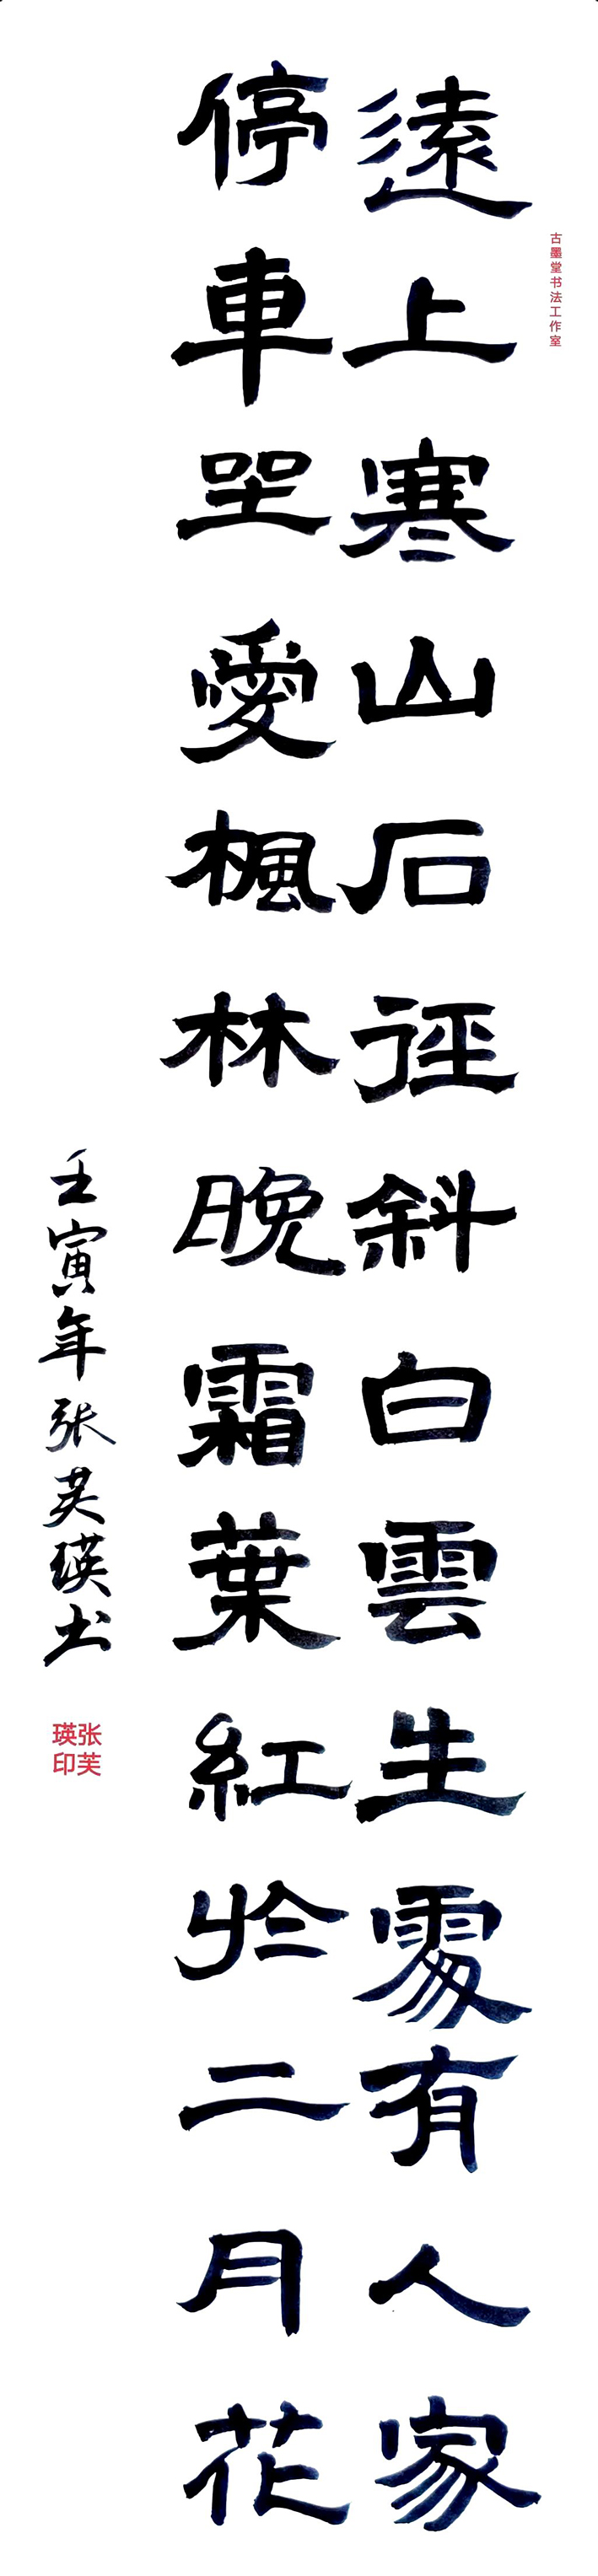 古墨堂书法工作室
遠上寒山石徑斜白雲生處有人家
停車坐愛楓林晚霜葉紅於二月花
壬寅年张芙瑛书
张芙
瑛印